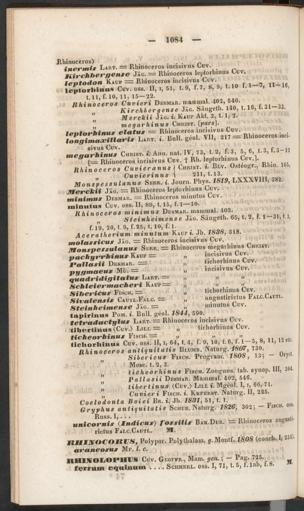 — 1084 —
Rhinoceros)
inermis LART. = Rhinoceros incisivus CUV.
Kirchbergense JÄG. = Rhinoceros leptorhinus CUV.
leptodon KAUP = Rhinoceros incisivus CUV.
leptorhinus CUV. oss. II, I, 51, t. 9, f. 7, 8, 9, t. 10 f. 1—7, 11—16,
t. 11, f. 10, 11, 15—22.
Rhinoceros Cuvieri DESMAR. mammal. 402, 546.
" Kirchbergense JÄG. Säugeth. 140, t. 16, f. 31—33.
" Merckii JÄG. i. KAUP Akt. 2, t. 1, 2.
" megarhinus CHRIST. (pars).
leptorhinus elatus = Rhinoceros incisivus CUV.
longimaxillaris LART. i. Bull. géol. VII, 217 = Rhinoceros inci-
sivus CUV.
megarhinus CHRIST. i. Ann. nat. IV, 23, t. 2,
[= Rhinoceros incisivus CUV. † Rh. leptorhinus CUV.].
Rhinoceros Cuvieranus
Cuvierinus
231, t. 13.
Monspessulanus SERR. i. Journ. Phys. 1819, LXXXVIII, 382.
Merckii JÄG. = Rhinoceros leptorhinus CUV.
minimus DESMAR. = Rhinoceros minutus CUV.
minutus CUV. oss. II, 89, t. 15, f. 1—16.
Rhinoceros minimus DESMAR. mammal. 403.
" Steinheimense JÄG. Säugeth. 65, t. 2, f. 1—31, t. 3,
f. 19, 20, t. 9, f. 25, t. 10, f. 1.
Aceratherium minutum KAUP i. Jb. 1838, 318.
molassicus JÄG. = Rhinoceros incisivus CUV.
Monspessulanus SERR. = Rhinoceros megarhinus CHRIST.
pachyrrhinus KAUP = " incisivus CUV.
Pallasii DESMAR. = " tichorhinus CUV.
pygmaeus MÜ. = " incisivus CUV.
quadridigitatus LART. =
Schleiermacheri KAUP =
Sibericus FISCH. = " tichorhinus CUV.
Sivalensis CAUTL. FALC. = " angustirictus FALC. CAUTL.
Steinheimense JÄG. = " minutus CUV.
tapirinus POM. i. Bull. géol. 1844, 590.
tetradactylus LART. = Rhinoceros incisivus CUV.
tibertinus (CUV.) LILE = " tichorhinus CUV.
tichaeorhinus FISCH. = "
tichorhinus CUV. oss. II, I, 64, t. 4, f. 9, 10, t. 6, f. 1—5, 8, 11, 12 etc.
Rhinoceros antiquitatis BLUMB. Naturg. 1807, 730.
" Sibericus FISCH. Programm. 1808, 13; — Oryd.
Mosc. t. 2, 3.
" tichaeorhinus FISCH. Zoogues. tab. synop. III, 304.
" Pallasii DESMAR. Mammal. 402, 546.
" tibertinus (CUV.) LILE i. Mgéol. I, I, 66, 71.
" Cuvieri FISCH. i. KARSTAT. Naturg. II, 225.
Coelodonta Boiei BR. i. Jb. 1831, 51, t. 1.
Gryphus antiquitatis SCHUB. Naturg. 1826, 302; — FISCH. oss.
RUSS. I, ...
unicornis (Indicus) fossilis BAK. DUR. = Rhinoceros angusti-
rictus FALC. CAUTL. M.
RHINOCORUS, Polypar. Polythalam. g. Montf. 1808 (conch. I, 235).
araneosus MF. l. c.
RHINOLOPHUS CUV. GEOFFR., Mam. gen. (— Pag. 725.
ferrum equinum .... SCHMERL. oss. I, 71, t. 5, f. lab, f. 8. M
17